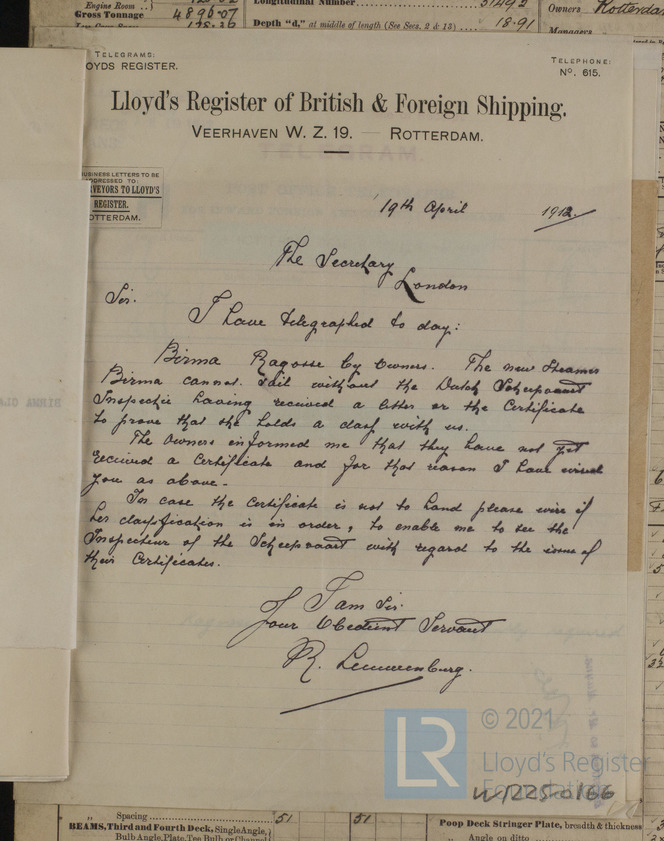 Engine Room
Gross Tonnage 4896.07
Longitudinal Number 31492
Depth "d," at middle of length (See Secs. 2 & 13) 18.91
Owners Rotterda
Managers
TELEGRAMS:
OYDS REGISTER.
TELEPHONE:
No. 615.
Lloyd's Register of British & Foreign Shipping.
VEERHAVEN W. Z. 19. — ROTTERDAM.
TELEGRAM.
BUSINESS LETTERS TO BE
DDRESSED TO:
RVEYORS TO LLOYD'S
REGISTER.
OTTERDAM.
19th April 1912.
The Secretary
London
Sir.
I have telegraphed to day:
Birma Ragosse by Owners. The new Steamer
Birma cannot sail without the Dutch Scheepvaart
Inspectie having received a letter or the Certificate
to prove that she holds a class with us.
The Owners informed me that they have not yet
received a Certificate and for that reason I have wired
you as above.
In case the Certificate is not to hand please wire if
her classification is in order, to enable me to see the
Inspecteur of the Scheepvaart with regard to the issue of
their Certificates.
I am Sir.
Your Obedient Servant
R. Leeuwenburg.
LR © 2021
Lloyd's Register
Foundation
W1225-0166
Spacing 51 51
BEAMS, Third and Fourth Deck, Single Angle,
Bulb Angle, Plate, Tee Bulb or Channel
Poop Deck Stringer Plate, breadth & thickness
Angle on ditto